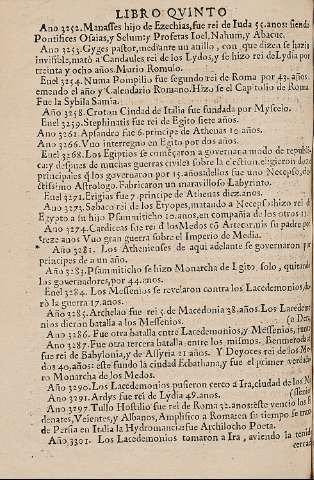 LIBRO QVINTO
Ano 3252. Manasses hijo de Ezechias, fue rei de Iuda 55. anos: siendo
Pontifices Osaias, y Selum: y Profetas Ioel, Nahum, y Abacuc.
Ano 3253. Gyges pastor, mediante un anillo, con que dizen se hazia
invisible, mató a Candaules rei de los Lydos, y se hizo rei de Lydia por
treinta y ocho años. Murio Romulo.
Enel 3254. Numa Pompilio fue segundo rei de Roma por 43. años,
emendo el año y Calendario Romano. Hizose el Capitolio de Roma
Fue la Sybila Samia.
Año 3258. Croton Ciudad de Italia fue fundada por Myscelo.
Enel 3259. Stephinatis fue rei de Egito siete años.
Ano 3261. Apsandro fue 6. principe de Athenas 10. años.
Año 3266. Vuo interregno en Egito por dos años.
Enel 3268. Los Egiptios se comẽçaron a governar a modo de republi
ca: y despues de muchas guerras civiles sobre la election, eligieron doze
principales q los governaron por 15. años: dellos fue uno Necepso, do
ctissimo Astrologo. Fabricaron un maravilloso Labyrinto.
Enel 3271. Erigias fue 7. principe de Athenas diez. anos.
Ano 3273. Sebaco rei de los Etyopes, matando a Necepso hizo rei de
Egypto a su hijo Psammiticho 10. anos, en compañia de los otros 11.
Ano 3274. Cardiceas fue rei dlos Medos cõ Artecarmis su padre por
treze anos Vuo gran guerra sobre el Imperio de Media.
Año 3281. Los Athenienses de aqui adelante se governaron por
principes de a un año.
Año 3283. Psammiticho se hizo Monarcha de Egito, solo, quitando
los governadores, por 44. anos.
Enel 3284. Los Messenios se revelaron contra los Lacedemonios, du
rò la guerra 17. anos.
Año 3285. Archelao fue rei 5. de Macedonia 38. años. Los Lacedemo
nios dieron batalla a los Messenios.
Año 3286. Fue otra batalla entre Lacedemonios, y Messenios, junto
Año 3287. Fue otra tercera batalla entre los mismos. Benmerodac
fue rei de Babylonia, y de Assyria 21. años. Y Deyoces rei de los Me
dos 40, años: este fundo la ciudad Ecbathana, y fue el primer verdade
ro Monarcha de los Medos.
Año 3290. Los Lacedemonios pusieron cerco a Ira, ciudad de los Me
Año 3291. Ardys fue rei de Lydia 49. anos.
Año 3297. Tullo Hostilio fue rei de Roma 32. anos: este vencio los Fi
denates, Veientes, y Albanos, Amplifico a Roma: en su tiempo se trato
de Persia en Italia la Hydromancia: fue Archilocho Poeta.
Año, 3301. Los Lacedemonios tomaron a Ira, aviendo la tenido
cercada